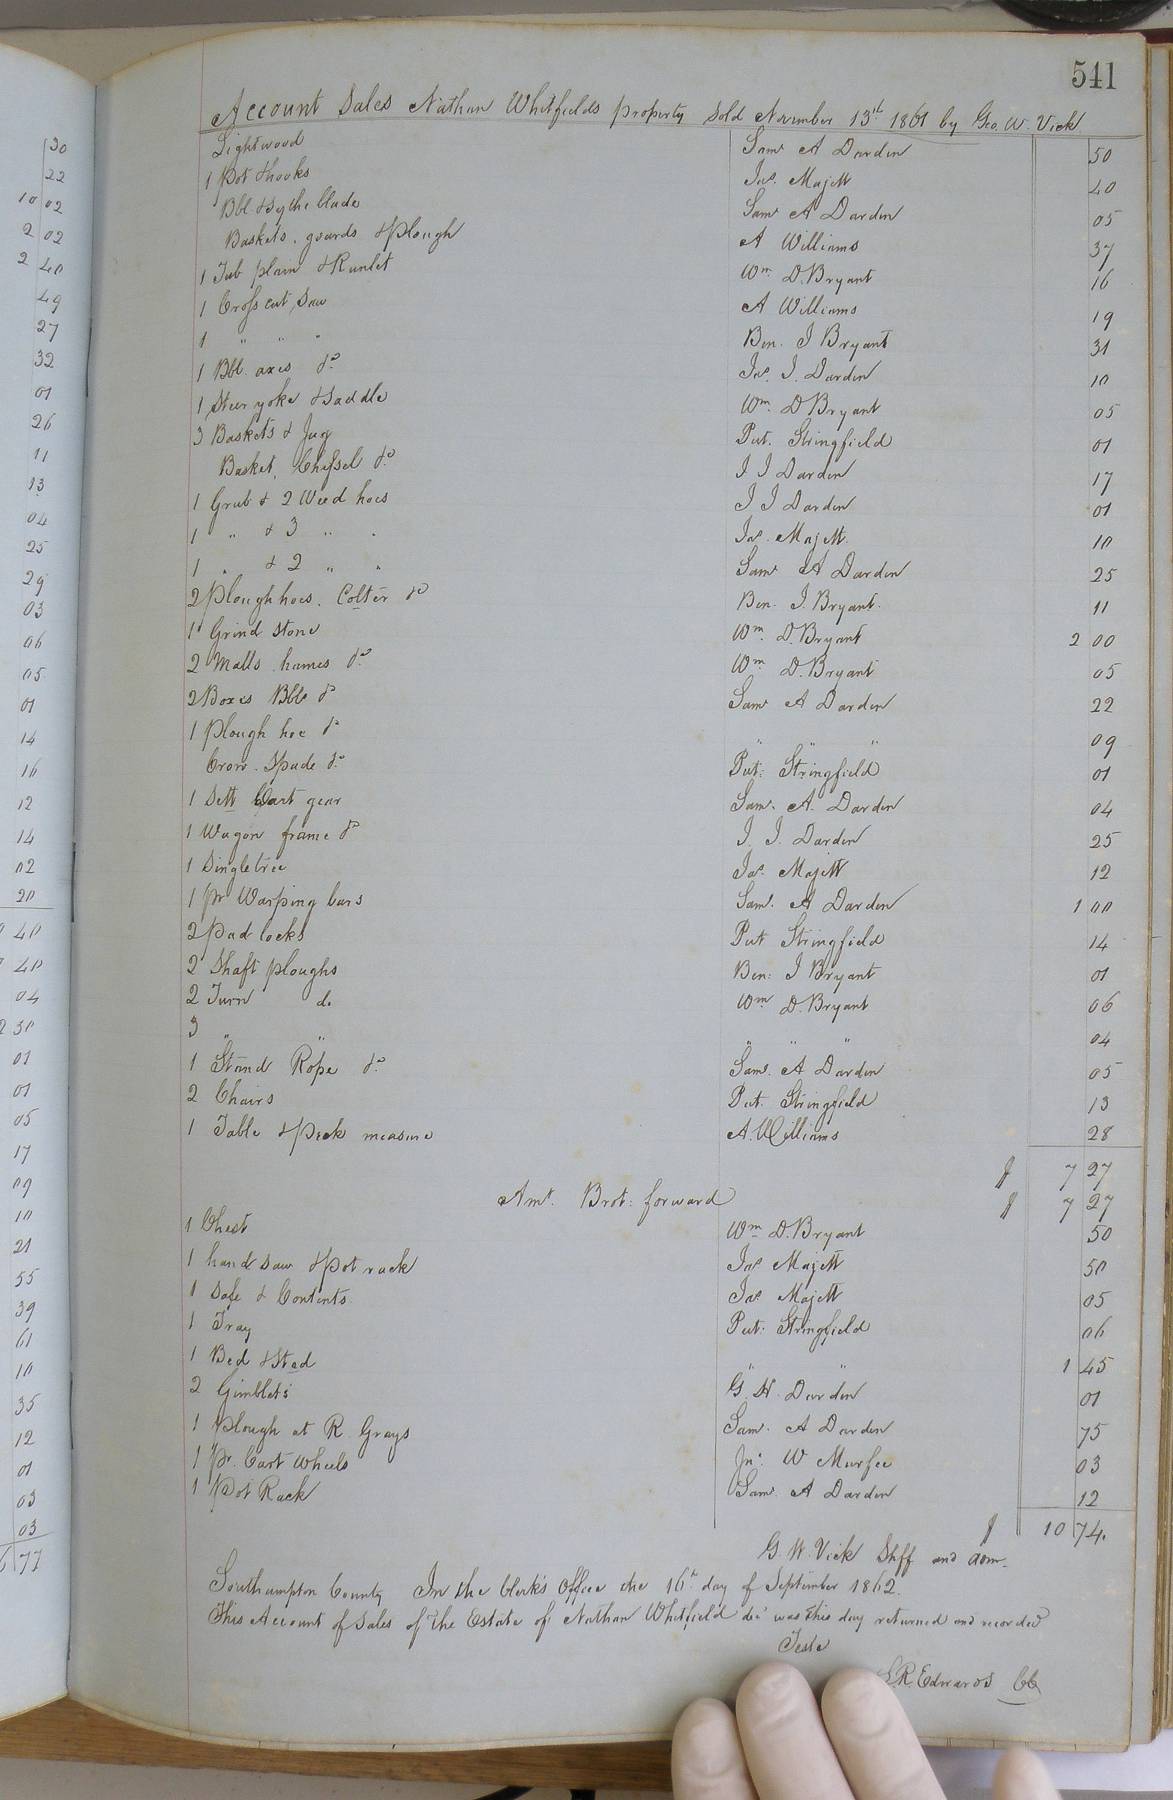 541
Account Sales Nathan Whitfields property Sold November 13th 1861 by Geo. W. Vick
Lightwood Saml A Darden 50
1 Pot & hooks Jas. Majett 40
Bbl & sythe blade Saml A Darden 05
Baskets, gourds & Plough A Williams 37
1 Tub plain & Runlet Wm D. Bryant 16
1 Cross cut saw A Williams 19
1 " " " Ben. J Bryant 31
1 Bbl. axes &c Jas. J. Darden 10
1 Steer yoke & saddle Wm D Bryant 05
3 Baskets & Jug Put. Stringfield 01
Basket, Chissel &c J J Darden 17
1 Grub & 2 Weed hoes J J Darden 01
1 " & 3 " " Jas. Majett 10
1 " & 2 " " Saml A Darden 25
2 Plough hoes. Colter &c Ben. J. Bryant. 11
1 Grind stone Wm D. Bryant 2 00
2 Malls hames &c Wm D. Bryant 05
2 Boxes Bbls &c Saml A Darden 22
1 Plough hoe &c " " " 09
Crow. Spade &c Put: Stringfield 01
1 Sett Cart gear Saml. A. Darden 04
1 Wagon frame &c J. J. Darden 25
1 Singletree Jas. Majett 12
1 pr Warping bars Saml. A Darden 1 00
2 Pad locks Put Stringfield 14
2 Shaft ploughs Ben: J Bryant 01
2 Turn do Wm D. Bryant 06
3 " " " " 04
1 Stand Rope &c Saml. A Darden 05
2 Chairs Put. Stringfield 13
1 Table & Peck measure A. Williams 28
$ 7 27
Amt. Brot: forward $ 7 27
1 Chest Wm D. Bryant 50
1 hand saw & Pot rack Jas Majett 50
1 Safe & Contents Jas Majett 05
1 Tray Put: Stringfield 06
1 Bed & Sted " " 1 45
2 Gimblets G. H. Darden 01
1 Plough at R. Grays Saml. A Darden 75
1 Pr. Cart Wheels Jno. W Murfee 03
1 Pot Rack Saml A Darden 12
$ 10 74.
G. W. Vick Shff and adm.
Southampton County In the Clerk's Office the 16th day of September 1862.
This Account of Sales of the Estate of Nathan Whitfield decd was this day returned and recorded
Teste
L. R. Edwards CC
30
22
10 02
2 02
2 40
49
27
32
01
26
11
13
04
25
29
03
06
05
01
14
16
12
14
02
20
40
40
04
2 30
01
01
05
17
09
10
21
55
39
61
10
35
12
01
03
03
6 77